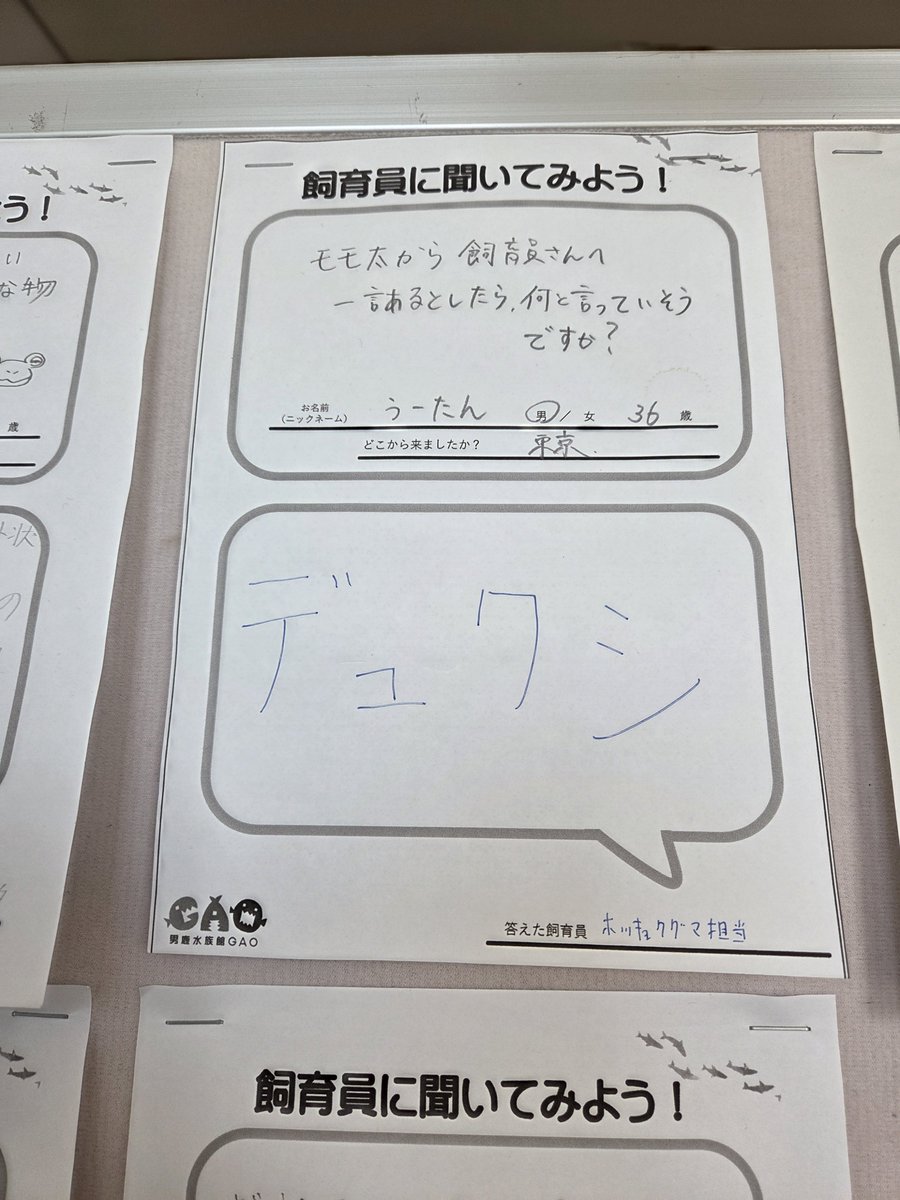 う！
い
な物
歳
状
の
飼育員に聞いてみよう！
モモ太から 飼育員さんへ
一言あるとしたら、何と言っていそう
ですか？
お名前
(ニックネーム) うーたん 男 / 女 36 歳
どこから来ましたか？ 東京
デュクシ
GAO
男鹿水族館GAO
答えた飼育員 ホッキョクグマ担当
飼育員に聞いてみよう！